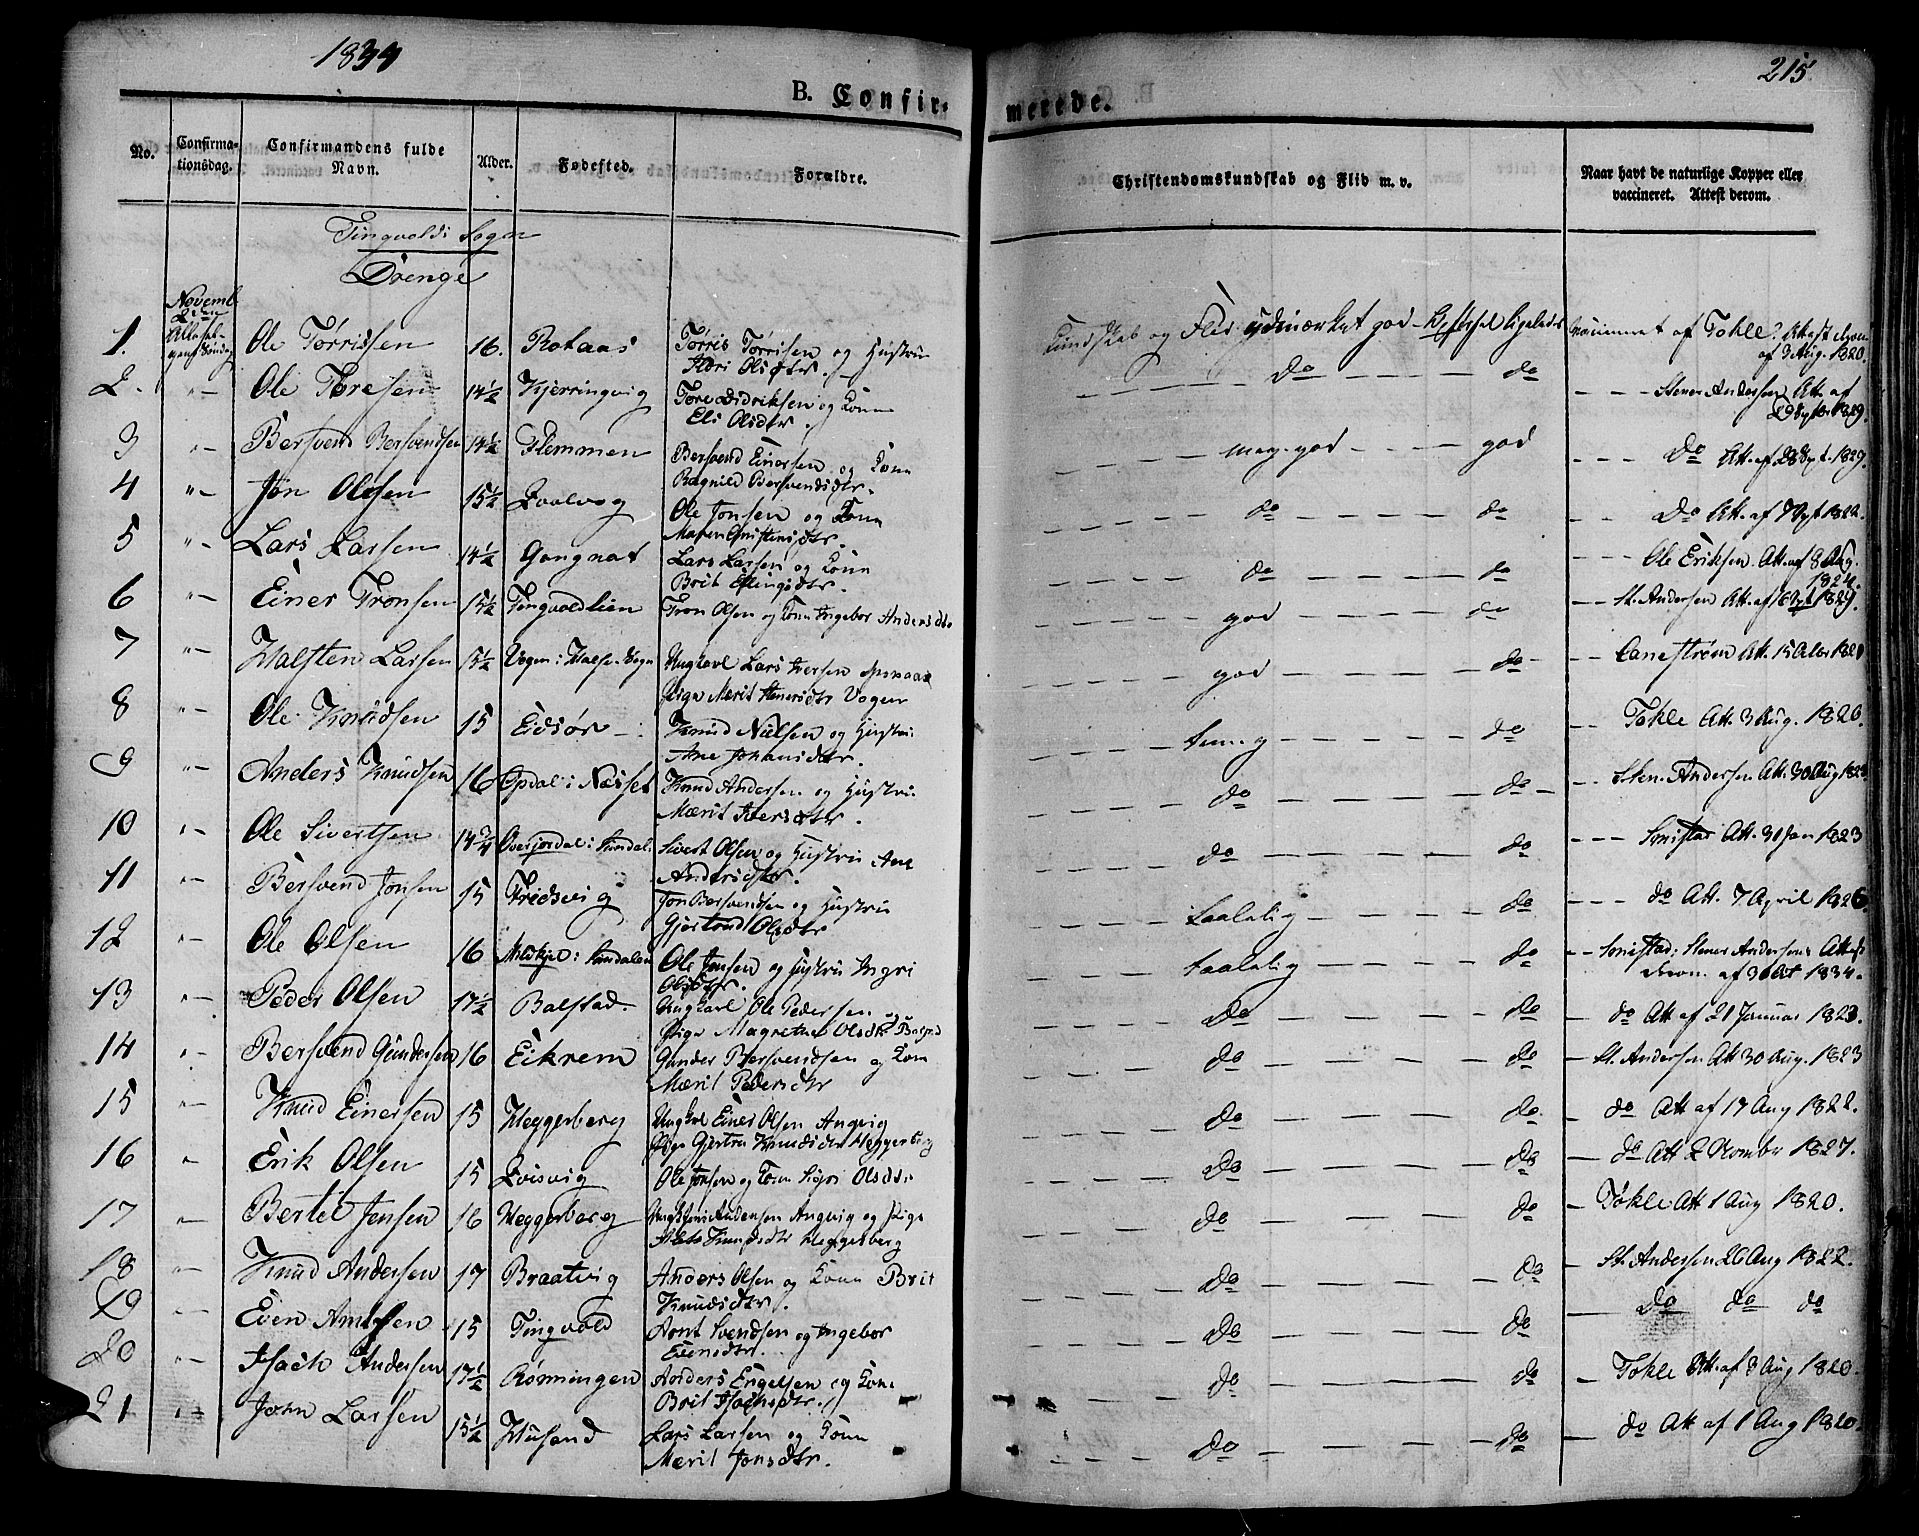 1834
215
B. Confir-
merede.
No.
Confirma-
tionsdag.
Confirmandens fulde
Navn.
Alder.
Fødested.
Forældre.
Christendomskundskab og Flid m. v.
Naar havt de naturlige Kopper eller
vaccineret. Attest derom.
Tingvolds Sogn
Drenge
Novemb.
2den
Allehel-
gens Søndag
1. Ole Tørrissen 16. Rotaas Tørris Tørrisen og Hustru
Olsdtr. Kundskab og Flid: ydmærket god - ligeledes af Tokle. Attest derom
af 3 Aug. 1820.
2. "– Ole Toresen 14½ Kjerringvig Tore Didriksen og Kone
Eli Olsdtr. do do Stener Andersen Att. af
1829.
3 "– Bersvend Bersvendsen 14½ Flemmen Bersvend Einersen og Kone
Ragnild Bersvendsdtr. meg. god god Do Att. af 28 Sept. 1829.
4 "– Jon Olsen 15½ Ole Jonsen og Kone
Maren Christensdtr. do do Do Att. af Sept 1822.
5 "– Lars Larsen 14½ Gangnat Lars Larsen og Kone
Brit Ellingsdtr. do do Ole Eriksen Att. af 8 Aug.
1824.
6 "– Einer Tronsen 15½ Tingvoldlien Tron Olsen og Kone Ingebor Andersdtr god do St. Andersen Att. af 16 Sept 1829.
7 "– Halsten Larsen 15½ Vogen i Halse Sogn Ungkarl Lars Iversen
Pige Merit Stenersdtr Vogen god do Att. 15
8 "– Ole Knudsen 15 Eidsør Knud Nielsen og Hustru
Ane Johansdtr. do Tokle Att. 3 Aug. 1820.
9 "– Anders Knudsen 16 Opdal i Næsset Knud Andersen og Hustru
Mærit Iversdtr. do do Sten. Andersen Att. 30 Aug 1823
10 "– Ole Sivertsen 14¾ Overjordal i Sundal. Sivert Olsen og Hustru Ane
Andersdtr. do do Smistad Att. 30 Jan 1823
11 "– Bersvend Jonsen 15 Fredsvig Jon Bersvendsen og Hustru
Gjertrud Olsdtr taalelig do do Att. 7 April 1826.
12 "– Ole Olsen 16 i Sundalen Ole Jonsen og Hustru Ingri
Olsdtr. taalelig do Smistad: Stener Andersens Attest
derom af 3 Oct 1834.
13 "– Peder Olsen 17½ Balstad. Ungkarl Ole Pedersen og
Pige Magrethe Olsdtr Do do do Att af 21 Januar 1823.
14 "– Bersvend Gundersen 16 Eikrem Gunder Bersvendsen og Kone
Mærit Pedersdtr do do St. Andersen Att 30 Aug. 1823
15 "– Knud Einersen 15 Heggerberg Ungkarl Einer Olsen Angvig
Pige Gjertru Knudsdtr Heggerberg do do. do Att af 17 Aug 1822.
16 " Erik Olsen 15 Qvisvig Ole Jonsen og Kone Sigri Olsdtr Do Do do Att 2 Novmbr 1827.
17 "– Bertel Jensen 16 Heggerberg Andersen Angvig og Pige
Knudsdtr Heggerberg do do Tokle Att 1 Aug 1820.
18 "– Knud Andersen 17 Braatvig Anders Olsen og Kone Brit
Knudsdtr. Do do St. Andersen 26 Aug 1822.
19 "– Even Amtsen 15 Tingvold Aont Svendsen og Ingebor
Evensdtr. Do do Do do do
20 "– Isach Andersen 17½ Rønningen Anders Engelsen og Kone
Brit Isachsdtr. do do Tokle Att. af 3 Aug 1820.
21 "– John Larsen 15½ Husand Lars Larsen og Kone
Mærit Jonsdtr. Do do do Att af 1 Aug 1820.